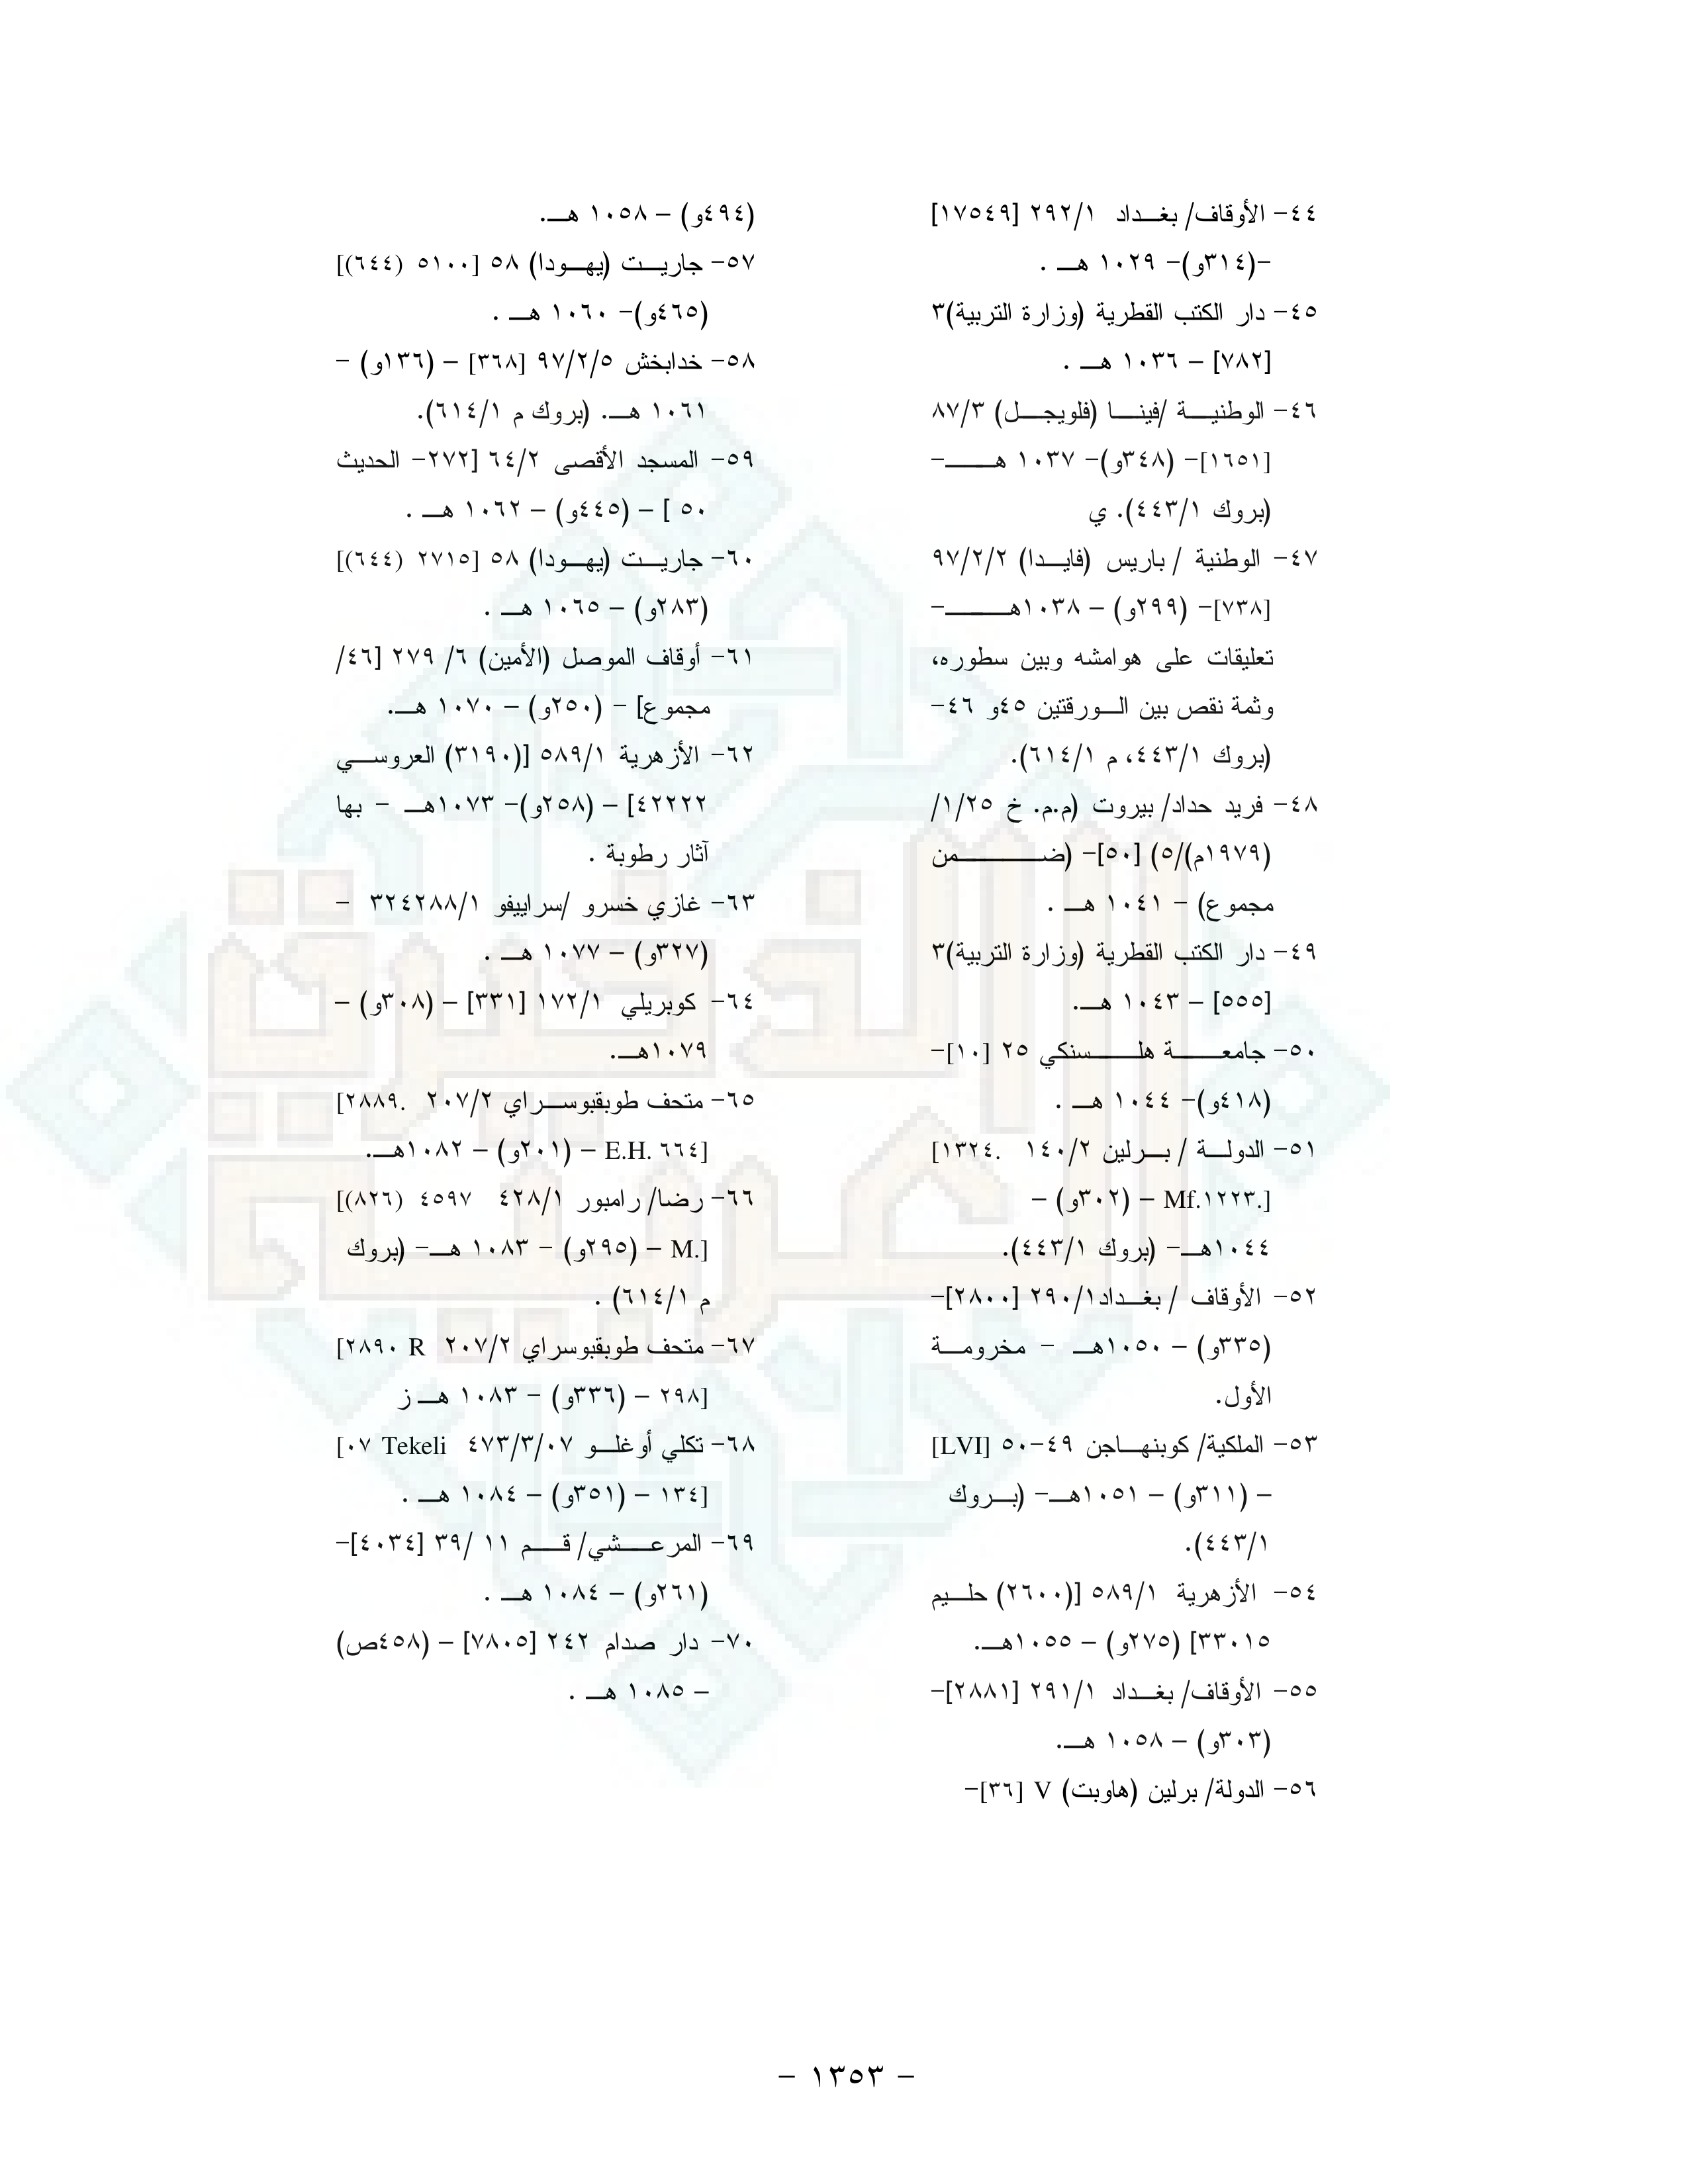 ٤٤- الأوقاف/ بغداد ٢٩٢/١ [١٧٥٤٩]
-(٣١٤و)- ١٠٢٩ هـ .
٤٥- دار الكتب القطرية (وزارة التربية)٣
[٧٨٢] – ١٠٣٦ هـ .
٤٦- الوطنية /فينا (فلويجل) ٨٧/٣
[١٦٥١]- (٣٤٨و)- ١٠٣٧ هـ-
(بروك ٤٤٣/١). ي
٤٧- الوطنية / باريس (فايدا) ٩٧/٢/٢
[٧٣٨]- (٢٩٩و) – ١٠٣٨هـ-
تعليقات على هوامشه وبين سطوره،
وثمة نقص بين الورقتين ٤٥و ٤٦-
(بروك ٤٤٣/١، م ٦١٤/١).
٤٨- فريد حداد/ بيروت (م.م. خ ١/٢٥/
(١٩٧٩م)/٥) [٥٠]- (ضمن
مجموع) - ١٠٤١ هـ .
٤٩- دار الكتب القطرية (وزارة التربية)٣
[٥٥٥] – ١٠٤٣ هـ.
٥٠- جامعة هلسنكي ٢٥ [١٠]-
(٤١٨و)- ١٠٤٤ هـ .
٥١- الدولة / برلين ١٤٠/٢ [١٣٢٤.
Mf.١٢٢٣.] – (٣٠٢و) –
١٠٤٤هـ- (بروك ٤٤٣/١).
٥٢- الأوقاف / بغداد٢٩٠/١ [٢٨٠٠]-
(٣٣٥و) – ١٠٥٠هـ - مخرومة
الأول.
٥٣- الملكية/ كوبنهاجن ٤٩-٥٠ [LVI]
– (٣١١و) – ١٠٥١هـ- (بروك
٤٤٣/١).
٥٤- الأزهرية ٥٨٩/١ [(٢٦٠٠) حليم
٣٣٠١٥] (٢٧٥و) – ١٠٥٥هـ.
٥٥- الأوقاف/ بغداد ٢٩١/١ [٢٨٨١]-
(٣٠٣و) – ١٠٥٨ هـ.
٥٦- الدولة/ برلين (هاوبت) V [٣٦]-
(٤٩٤و) – ١٠٥٨ هـ.
٥٧- جاريت (يهودا) ٥٨ [٥١٠٠ (٦٤٤)]
(٤٦٥و)- ١٠٦٠ هـ .
٥٨- خدابخش ٩٧/٢/٥ [٣٦٨] – (١٣٦و) -
١٠٦١ هـ. (بروك م ٦١٤/١).
٥٩- المسجد الأقصى ٦٤/٢ [٢٧٢- الحديث
٥٠ ] – (٤٤٥و) – ١٠٦٢ هـ .
٦٠- جاريت (يهودا) ٥٨ [٢٧١٥ (٦٤٤)]
(٢٨٣و) – ١٠٦٥ هـ .
٦١- أوقاف الموصل (الأمين) ٦/ ٢٧٩ [٤٦/
مجموع] - (٢٥٠و) – ١٠٧٠ هـ.
٦٢- الأزهرية ٥٨٩/١ [(٣١٩٠) العروسي
٤٢٢٢٢] – (٢٥٨و)- ١٠٧٣هـ - بها
آثار رطوبة .
٦٣- غازي خسرو /سراييفو ٣٢٤٢٨٨/١ -
(٣٢٧و) – ١٠٧٧ هـ .
٦٤- كوبريلي ١٧٢/١ [٣٣١] – (٣٠٨و) –
١٠٧٩هـ.
٦٥- متحف طوبقبوسراي ٢٠٧/٢ [٢٨٨٩.
E.H. ٦٦٤] – (٢٠١و) – ١٠٨٢هـ.
٦٦- رضا/ رامبور ٤٢٨/١ [(٨٢٦) ٤٥٩٧
M.] – (٢٩٥و) - ١٠٨٣ هـ- (بروك
م ٦١٤/١) .
٦٧- متحف طوبقبوسراي ٢٠٧/٢ [٢٨٩٠ R
٢٩٨] – (٣٣٦و) - ١٠٨٣ هـ ز
٦٨- تكلي أوغلو ٤٧٣/٣/٠٧ [٠٧ Tekeli
١٣٤] – (٣٥١و) – ١٠٨٤ هـ .
٦٩- المرعشي/ قم ١١ /٣٩ [٤٠٣٤]-
(٢٦١و) – ١٠٨٤ هـ .
٧٠- دار صدام ٢٤٢ [٧٨٠٥] – (٤٥٨ص)
– ١٠٨٥ هـ .
- ١٣٥٣ -